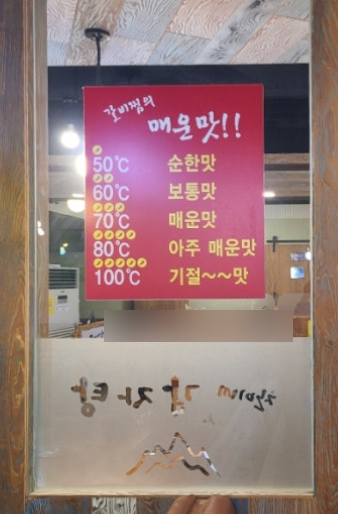 갈비찜의
매운맛!!
50℃ 순한맛
60℃ 보통맛
70℃ 매운맛
80℃ 아주 매운맛
100℃ 기절~~맛
감자탕